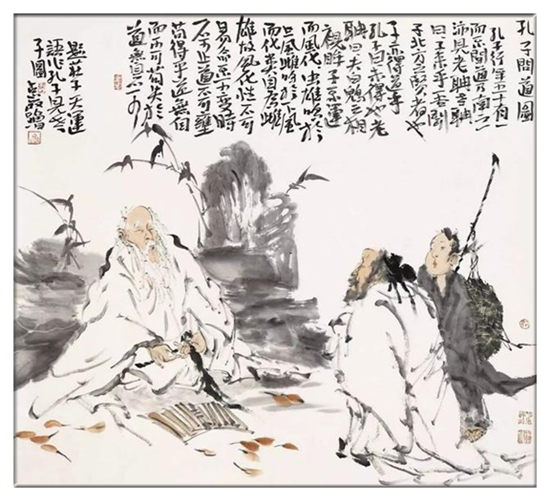 孔子問道圖
孔子行年五十有一
而不聞道乃南之
沛見老聃老聃
曰子來乎吾聞
子北方之賢者也
子亦得道乎
孔子曰未得也老
聃曰夫白鶂之相
視眸子不運
而風化虫雄鳴於
上風雌鳴於下風
而化類自為雌
雄故風化性不可
易命不可變時
不可止道不可壅
苟得乎道無自
而不可苟失於
道無自而可
題莊子天運
語作孔子見老
子圖